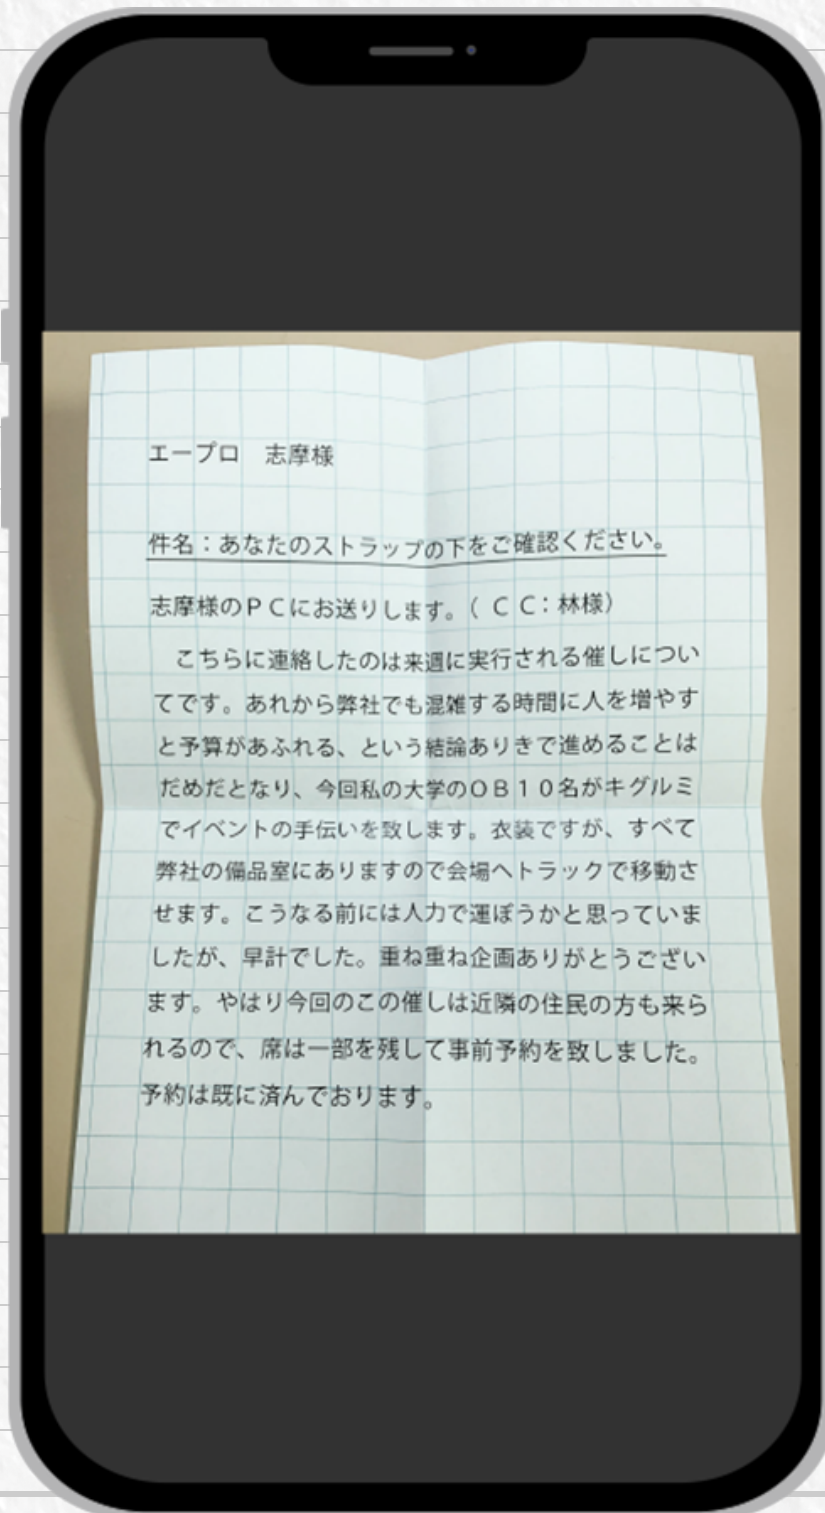 エープロ　志摩様
件名：あなたのストラップの下をご確認ください。
志摩様のＰＣにお送りします。（ＣＣ：林様）
　こちらに連絡したのは来週に実行される催しについ
てです。あれから弊社でも混雑する時間に人を増やす
と予算があふれる、という結論ありきで進めることは
だめだとなり、今回私の大学のＯＢ１０名がキグルミ
でイベントの手伝いを致します。衣装ですが、すべて
弊社の備品室にありますので会場へトラックで移動さ
せます。こうなる前には人力で運ぼうかと思っていま
したが、早計でした。重ね重ね企画ありがとうござい
ます。やはり今回のこの催しは近隣の住民の方も来ら
れるので、席は一部を残して事前予約を致しました。
予約は既に済んでおります。